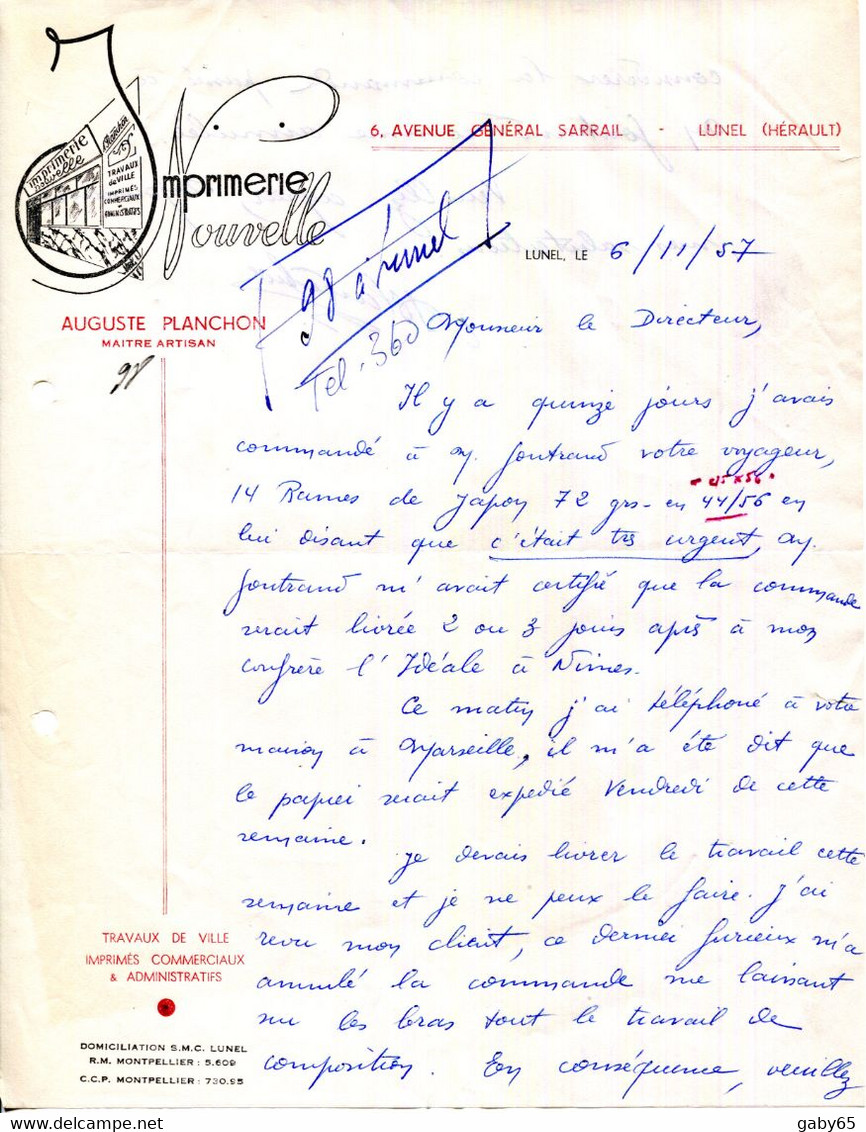 imprimerie
nouvelle
Planchon
TRAVAUX
de VILLE
IMPRIMÉS
COMMERCIAUX
ADMINISTRATIFS
Imprimerie
Nouvelle
6, AVENUE GÉNÉRAL SARRAIL - LUNEL (HÉRAULT)
98 à Lunel
Tel. 360
LUNEL, LE 6/11/57
AUGUSTE PLANCHON
MAITRE ARTISAN
98
Monsieur le Directeur,
Il y a quinze jours j'avais
commandé à M. Fontrand votre voyageur,
- 45 x 56 -
14 Rames de Japon 72 grs - en 44/56 en
lui disant que c'était très urgent, M.
Fontrand m'avait certifié que la commande
serait livrée 2 ou 3 jours après à mon
confrère l'Idéale à Nimes.
Ce matin j'ai téléphoné à votre
maison à Marseille, il m'a été dit que
le papier serait expedié Vendredi de cette
semaine.
Je devais livrer le travail cette
semaine et je ne peux le faire. J'ai
revu mon client, ce dernier furieux m'a
annulé la commande me laissant
sur les bras tout le travail de
composition. En conséquence, veuillez
TRAVAUX DE VILLE
IMPRIMÉS COMMERCIAUX
& ADMINISTRATIFS
DOMICILIATION S.M.C. LUNEL
R.M. MONTPELLIER : 5.609
C.C.P. MONTPELLIER : 730.95
gaby65